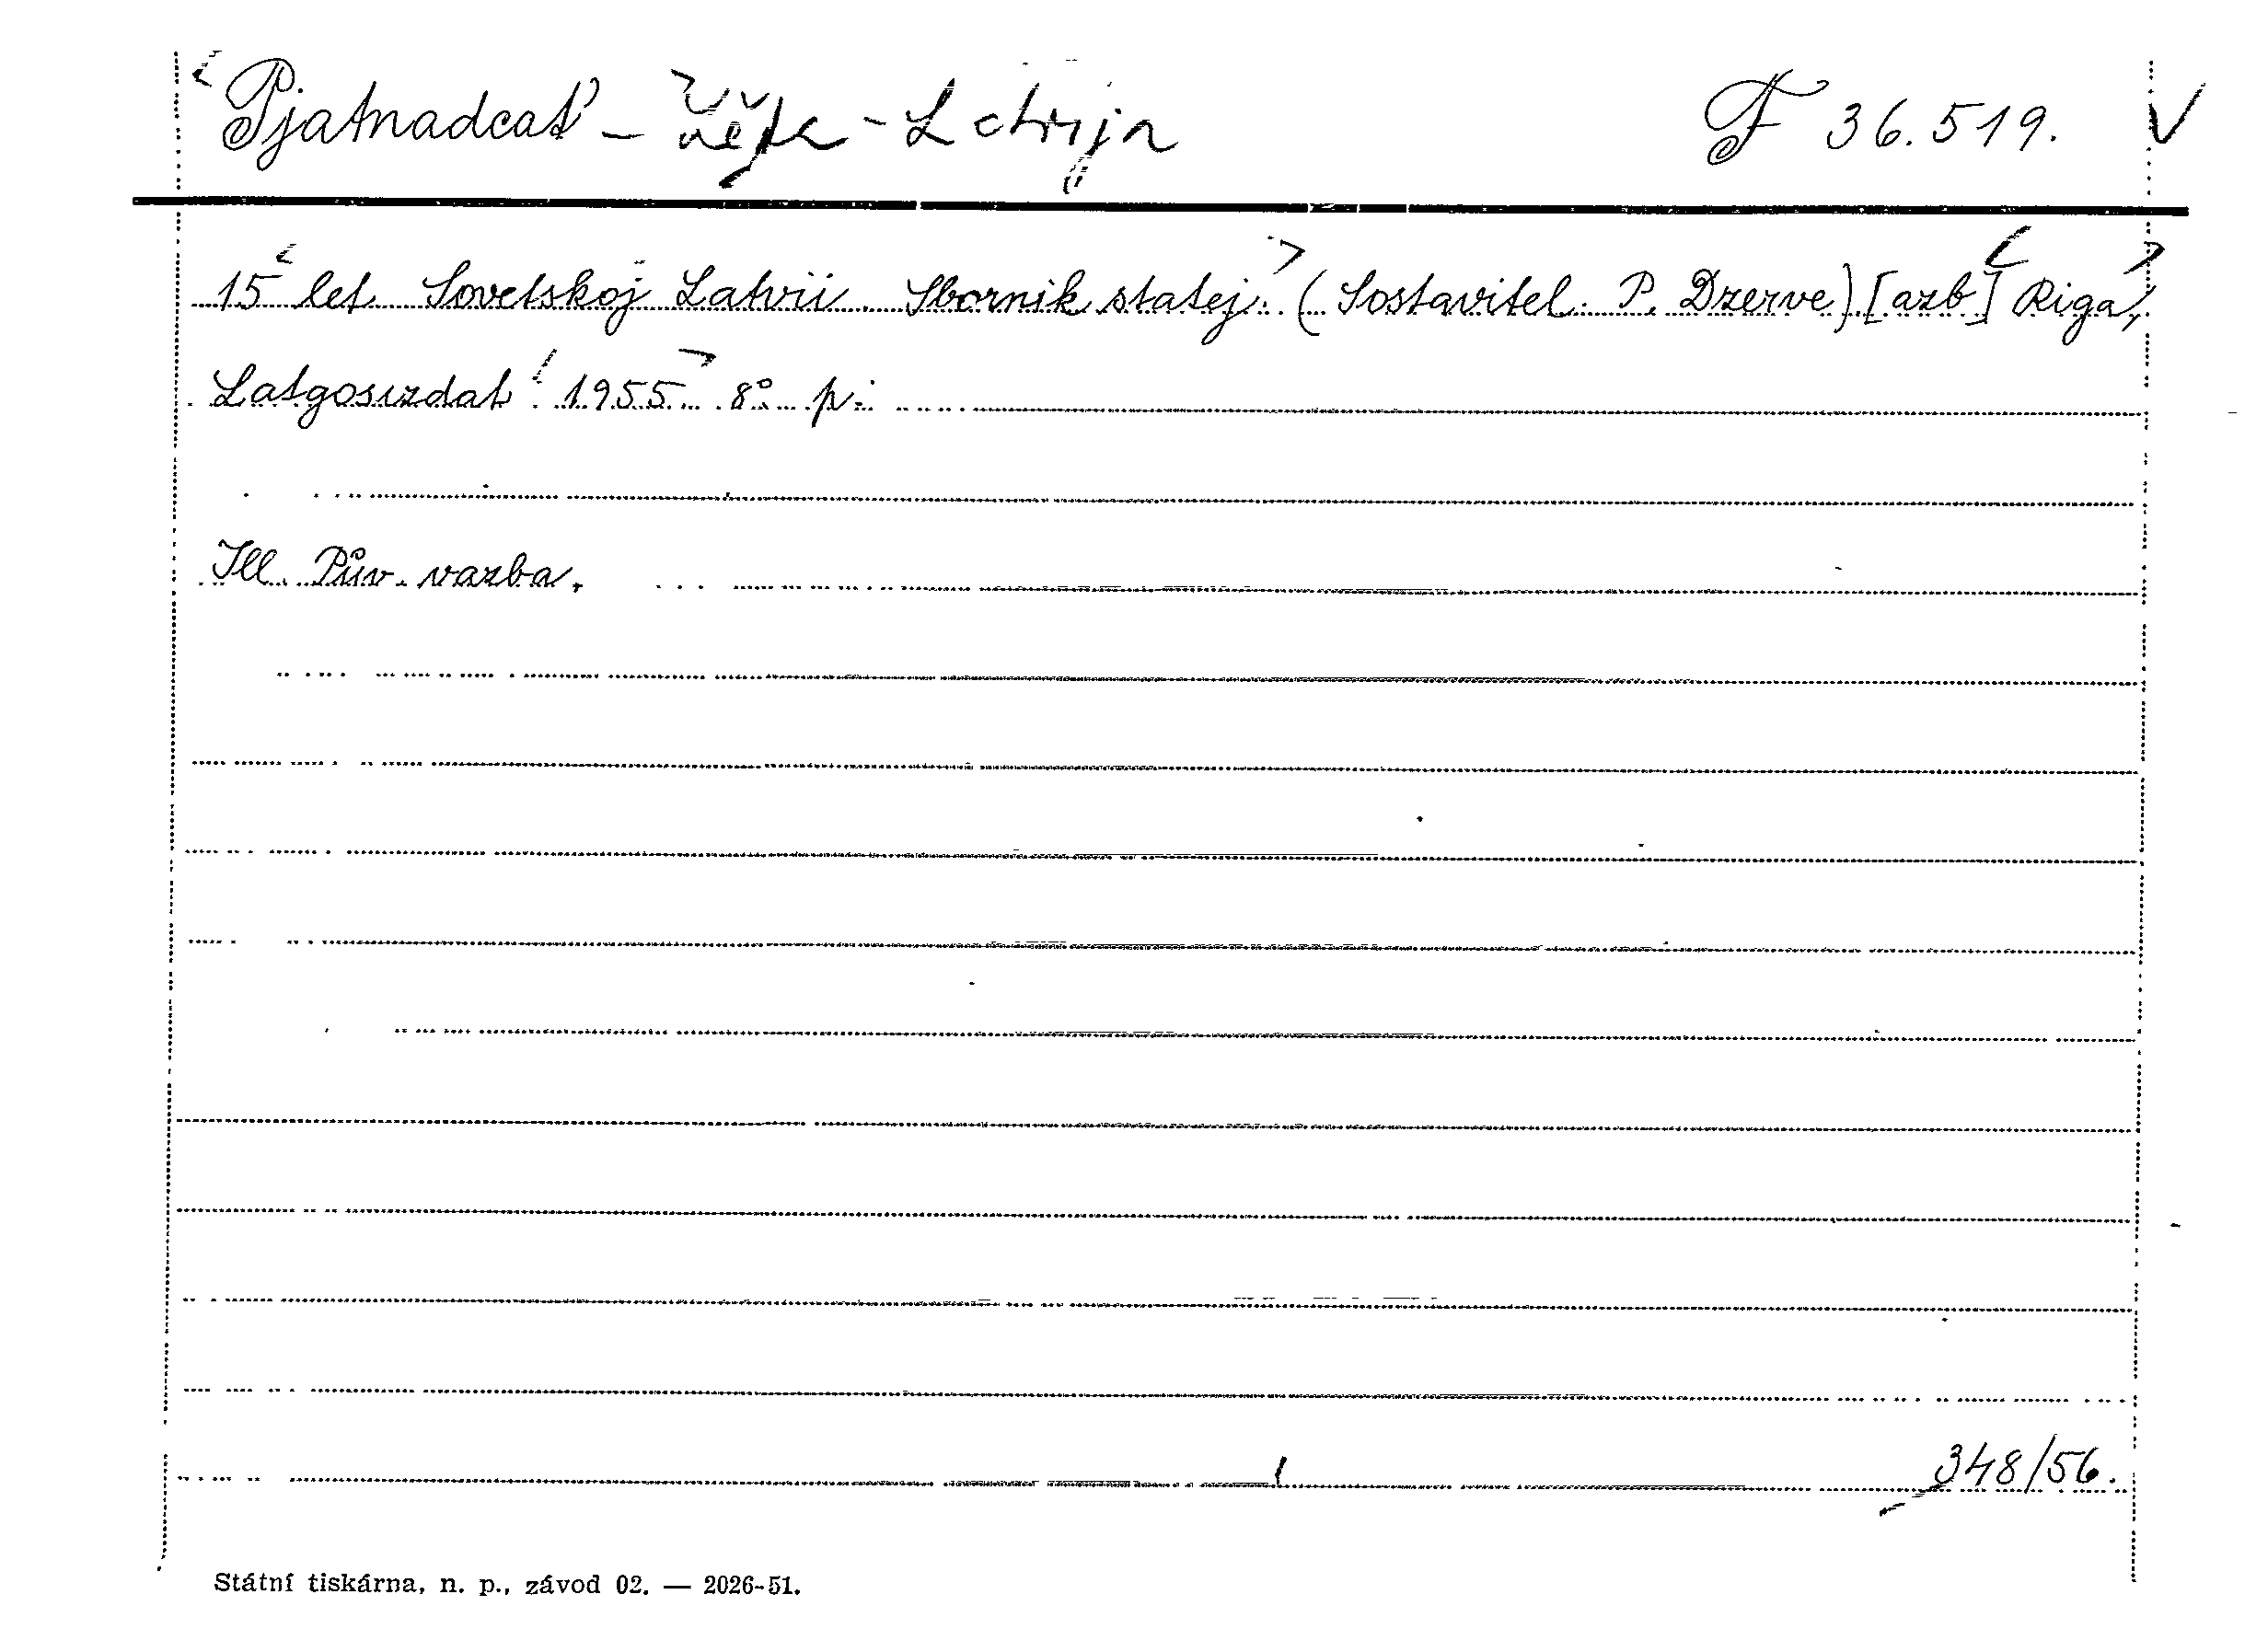 Pjatnadcať - - F 36.519. V
15 let Sovetskoj Latvii. Sbornik statej. (Sostavitel. P. Dzerve) [azb] Riga,
Latgosizdat 1955 8° p.
Ill. Pův. vazba.
348/56.
Státní tiskárna, n. p., závod 02. — 2026-51.